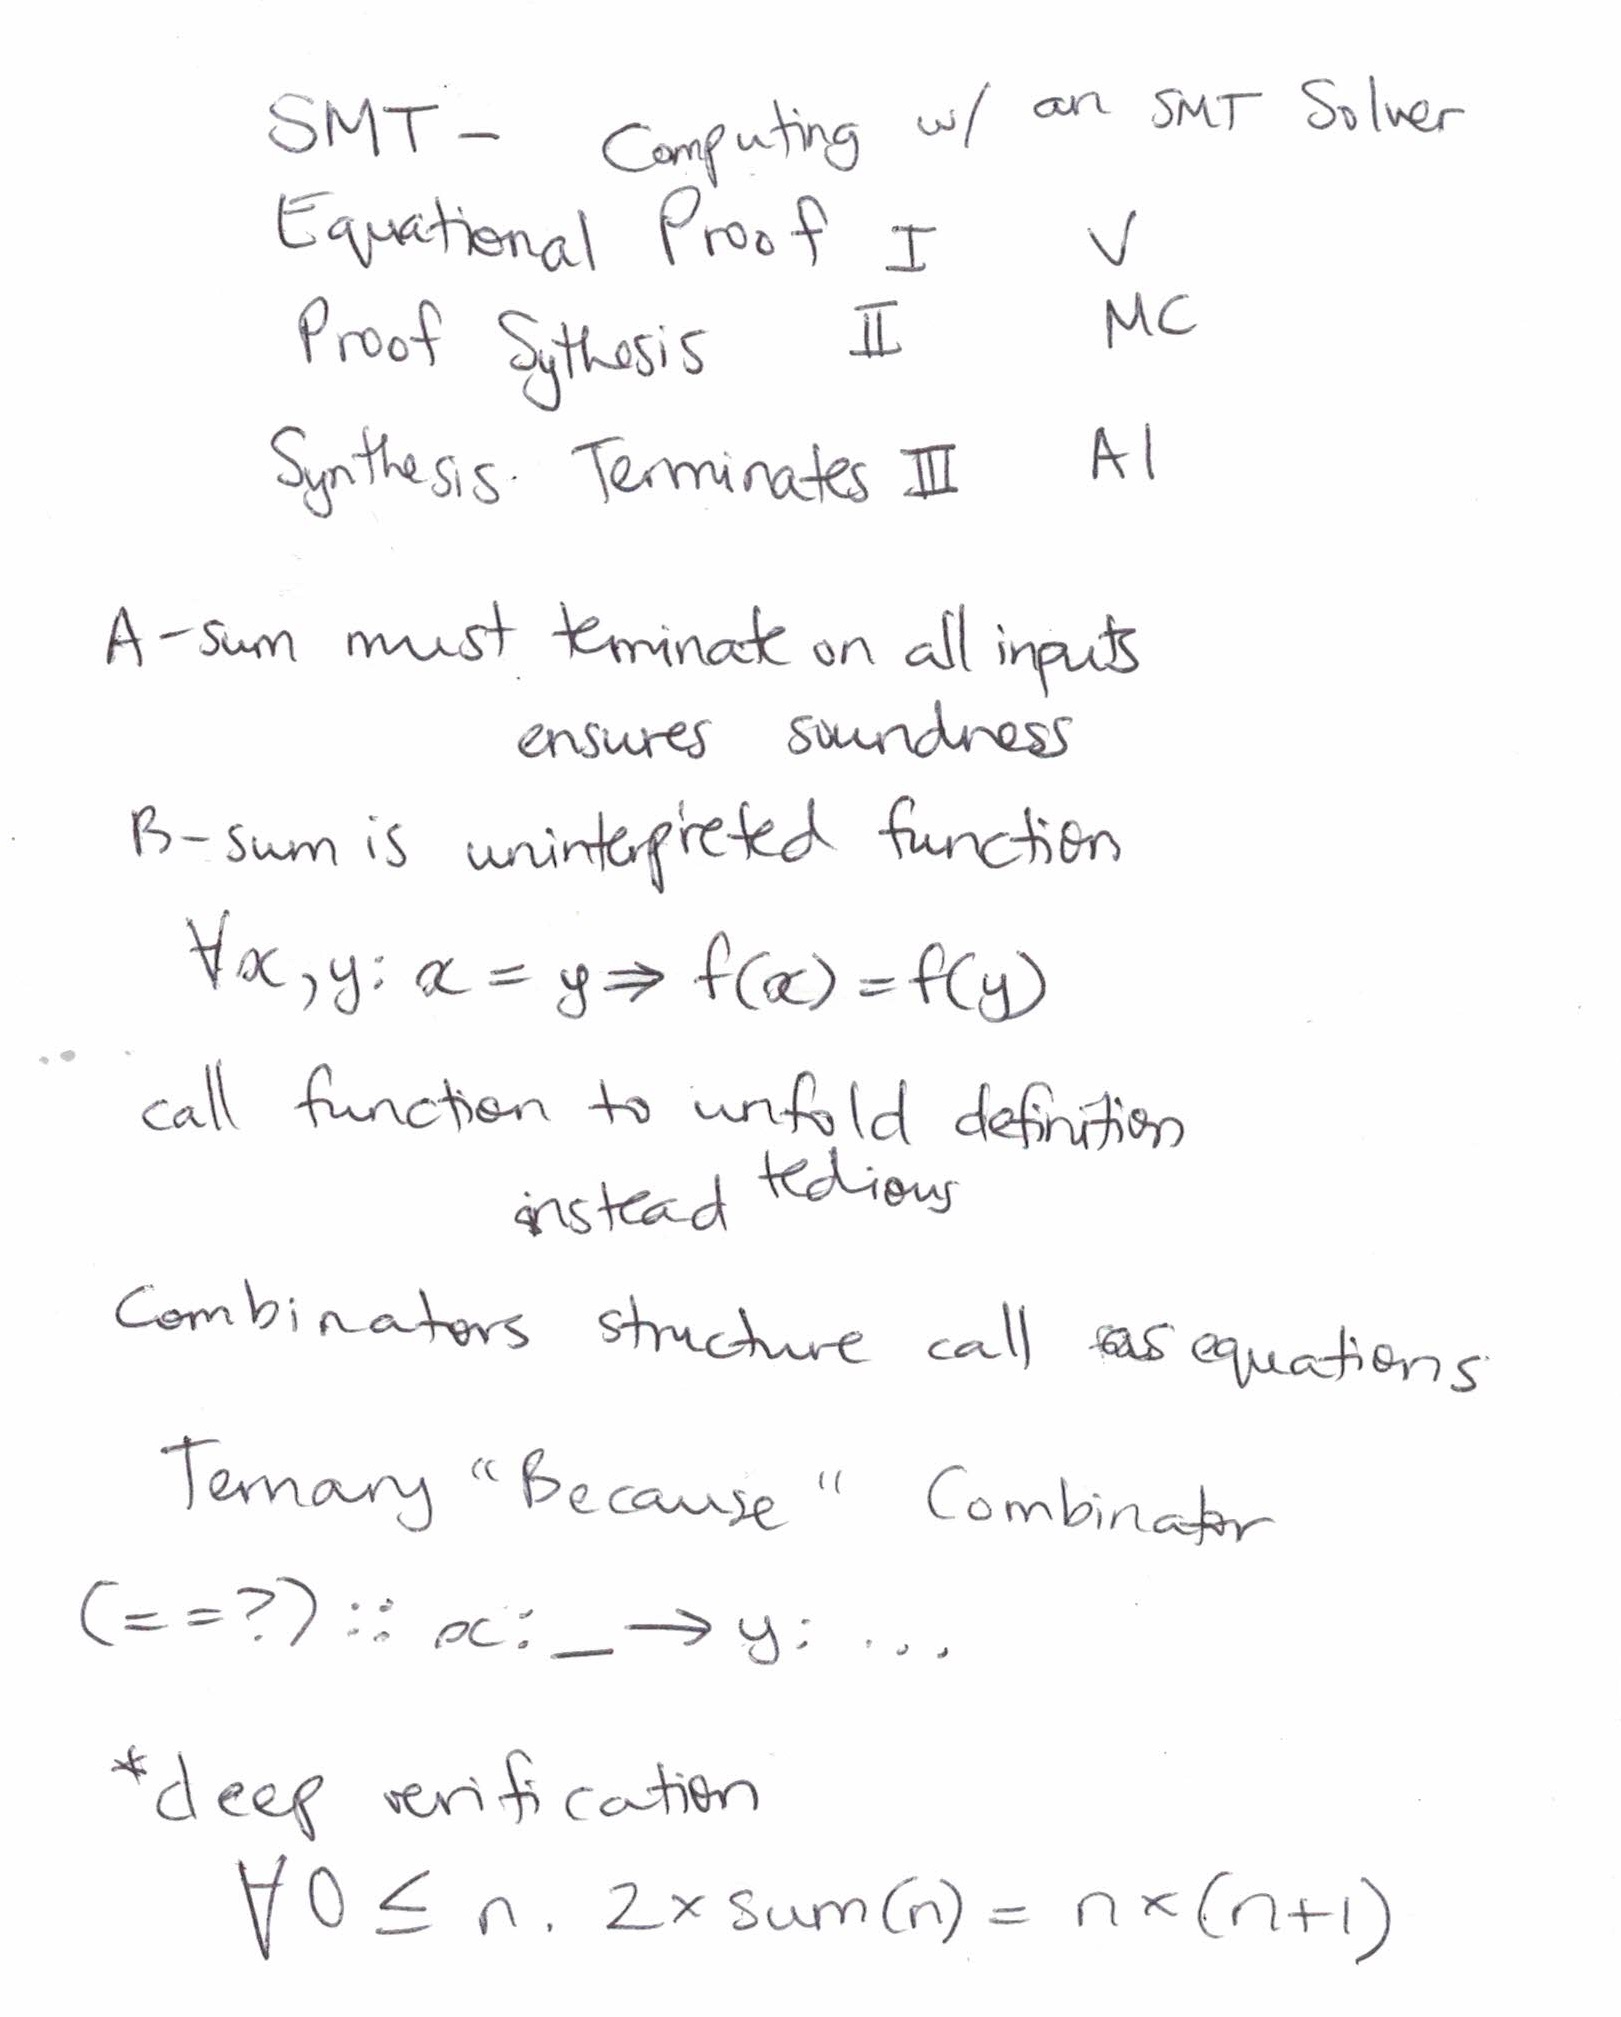 SMT - Computing w/ an SMT Solver
Equational Proof I V
Proof Sythesis II MC
Synthesis. Terminates III AI
A - sum must terminate on all inputs
ensures soundness
B - sum is uninterpreted function
∀x,y: x = y ⇒ f(x) = f(y)
call function to unfold definition
instead tedious
Combinators structure call as equations
Ternary “Because” Combinator
(==?) :: x:_ → y: ...
*deep verification
∀ 0 ≤ n. 2 × sum(n) = n × (n+1)